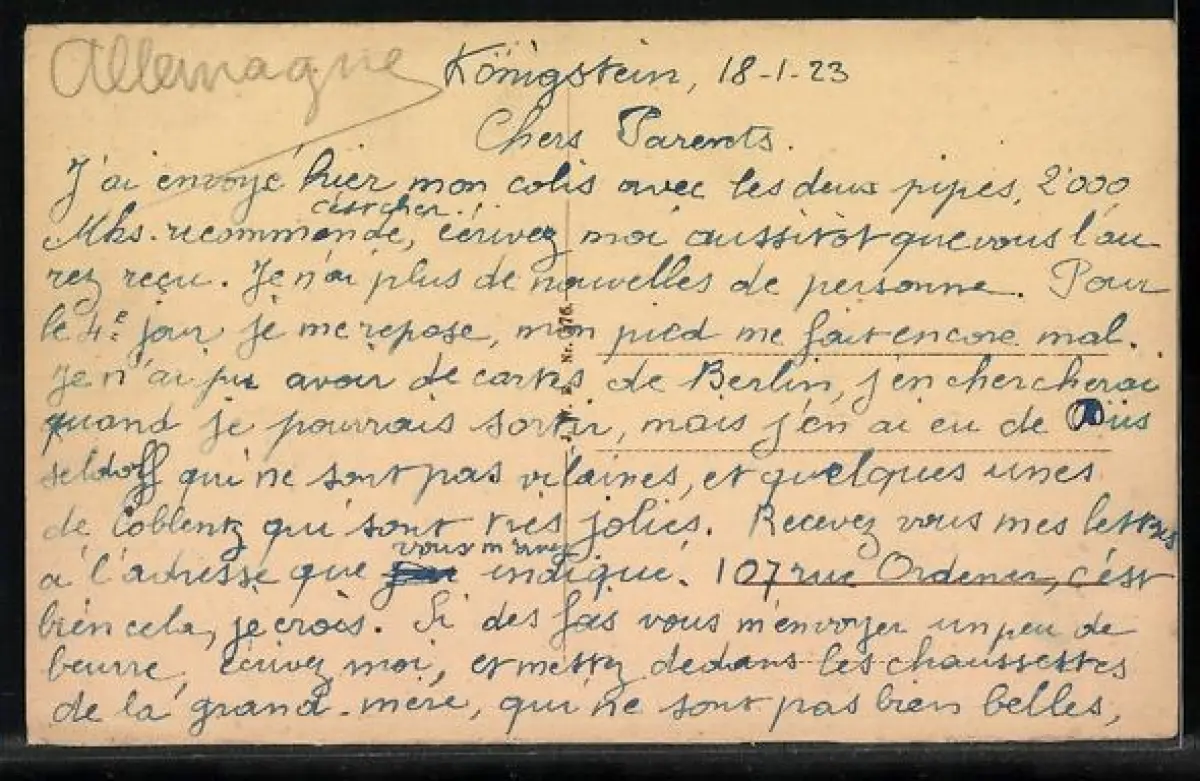 Allemagne
Königstein, 18-1-23
Chers Parents.
J'ai envoyé hier mon colis avec les deux pipes, 2'000
c'est cher..
Mks. recommandé, écrivez moi aussitôt que vous l'au
rez reçu. Je n'ai plus de nouvelles de personne. Pour
le 4e jour je me repose, mon pied me fait encore mal.
Je n'ai pu avoir de cartes de Berlin, j'en chercherai
quand je pourrais sortir, mais j'en ai eu de Düs
seldorff qui ne sont pas vilaines, et quelques unes
de Coblentz qui sont très jolies. Recevez vous mes lettres
vous m'avez
à l'adresse que indiqué. 107 rue Ordener, c'est
bien cela, je crois. Si des fois vous m'envoyer un peu de
beurre, écrivez moi, et mettez dedans les chaussettes
de la grand-mère, qui ne sont pas bien belles,